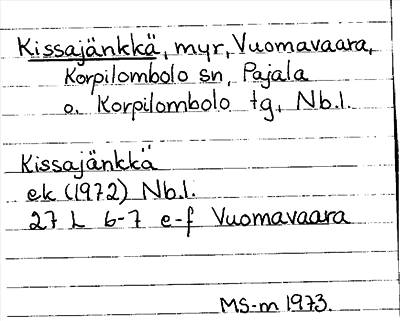 Kissajänkkä, myr, Vuomavaara,
Korpilombolo sn, Pajala
o. Korpilombolo tg, Nb.l.
Kissajänkkä
ek (1972) Nb.l.
27 L 6-7 e-f Vuomavaara
MS-m 1973.